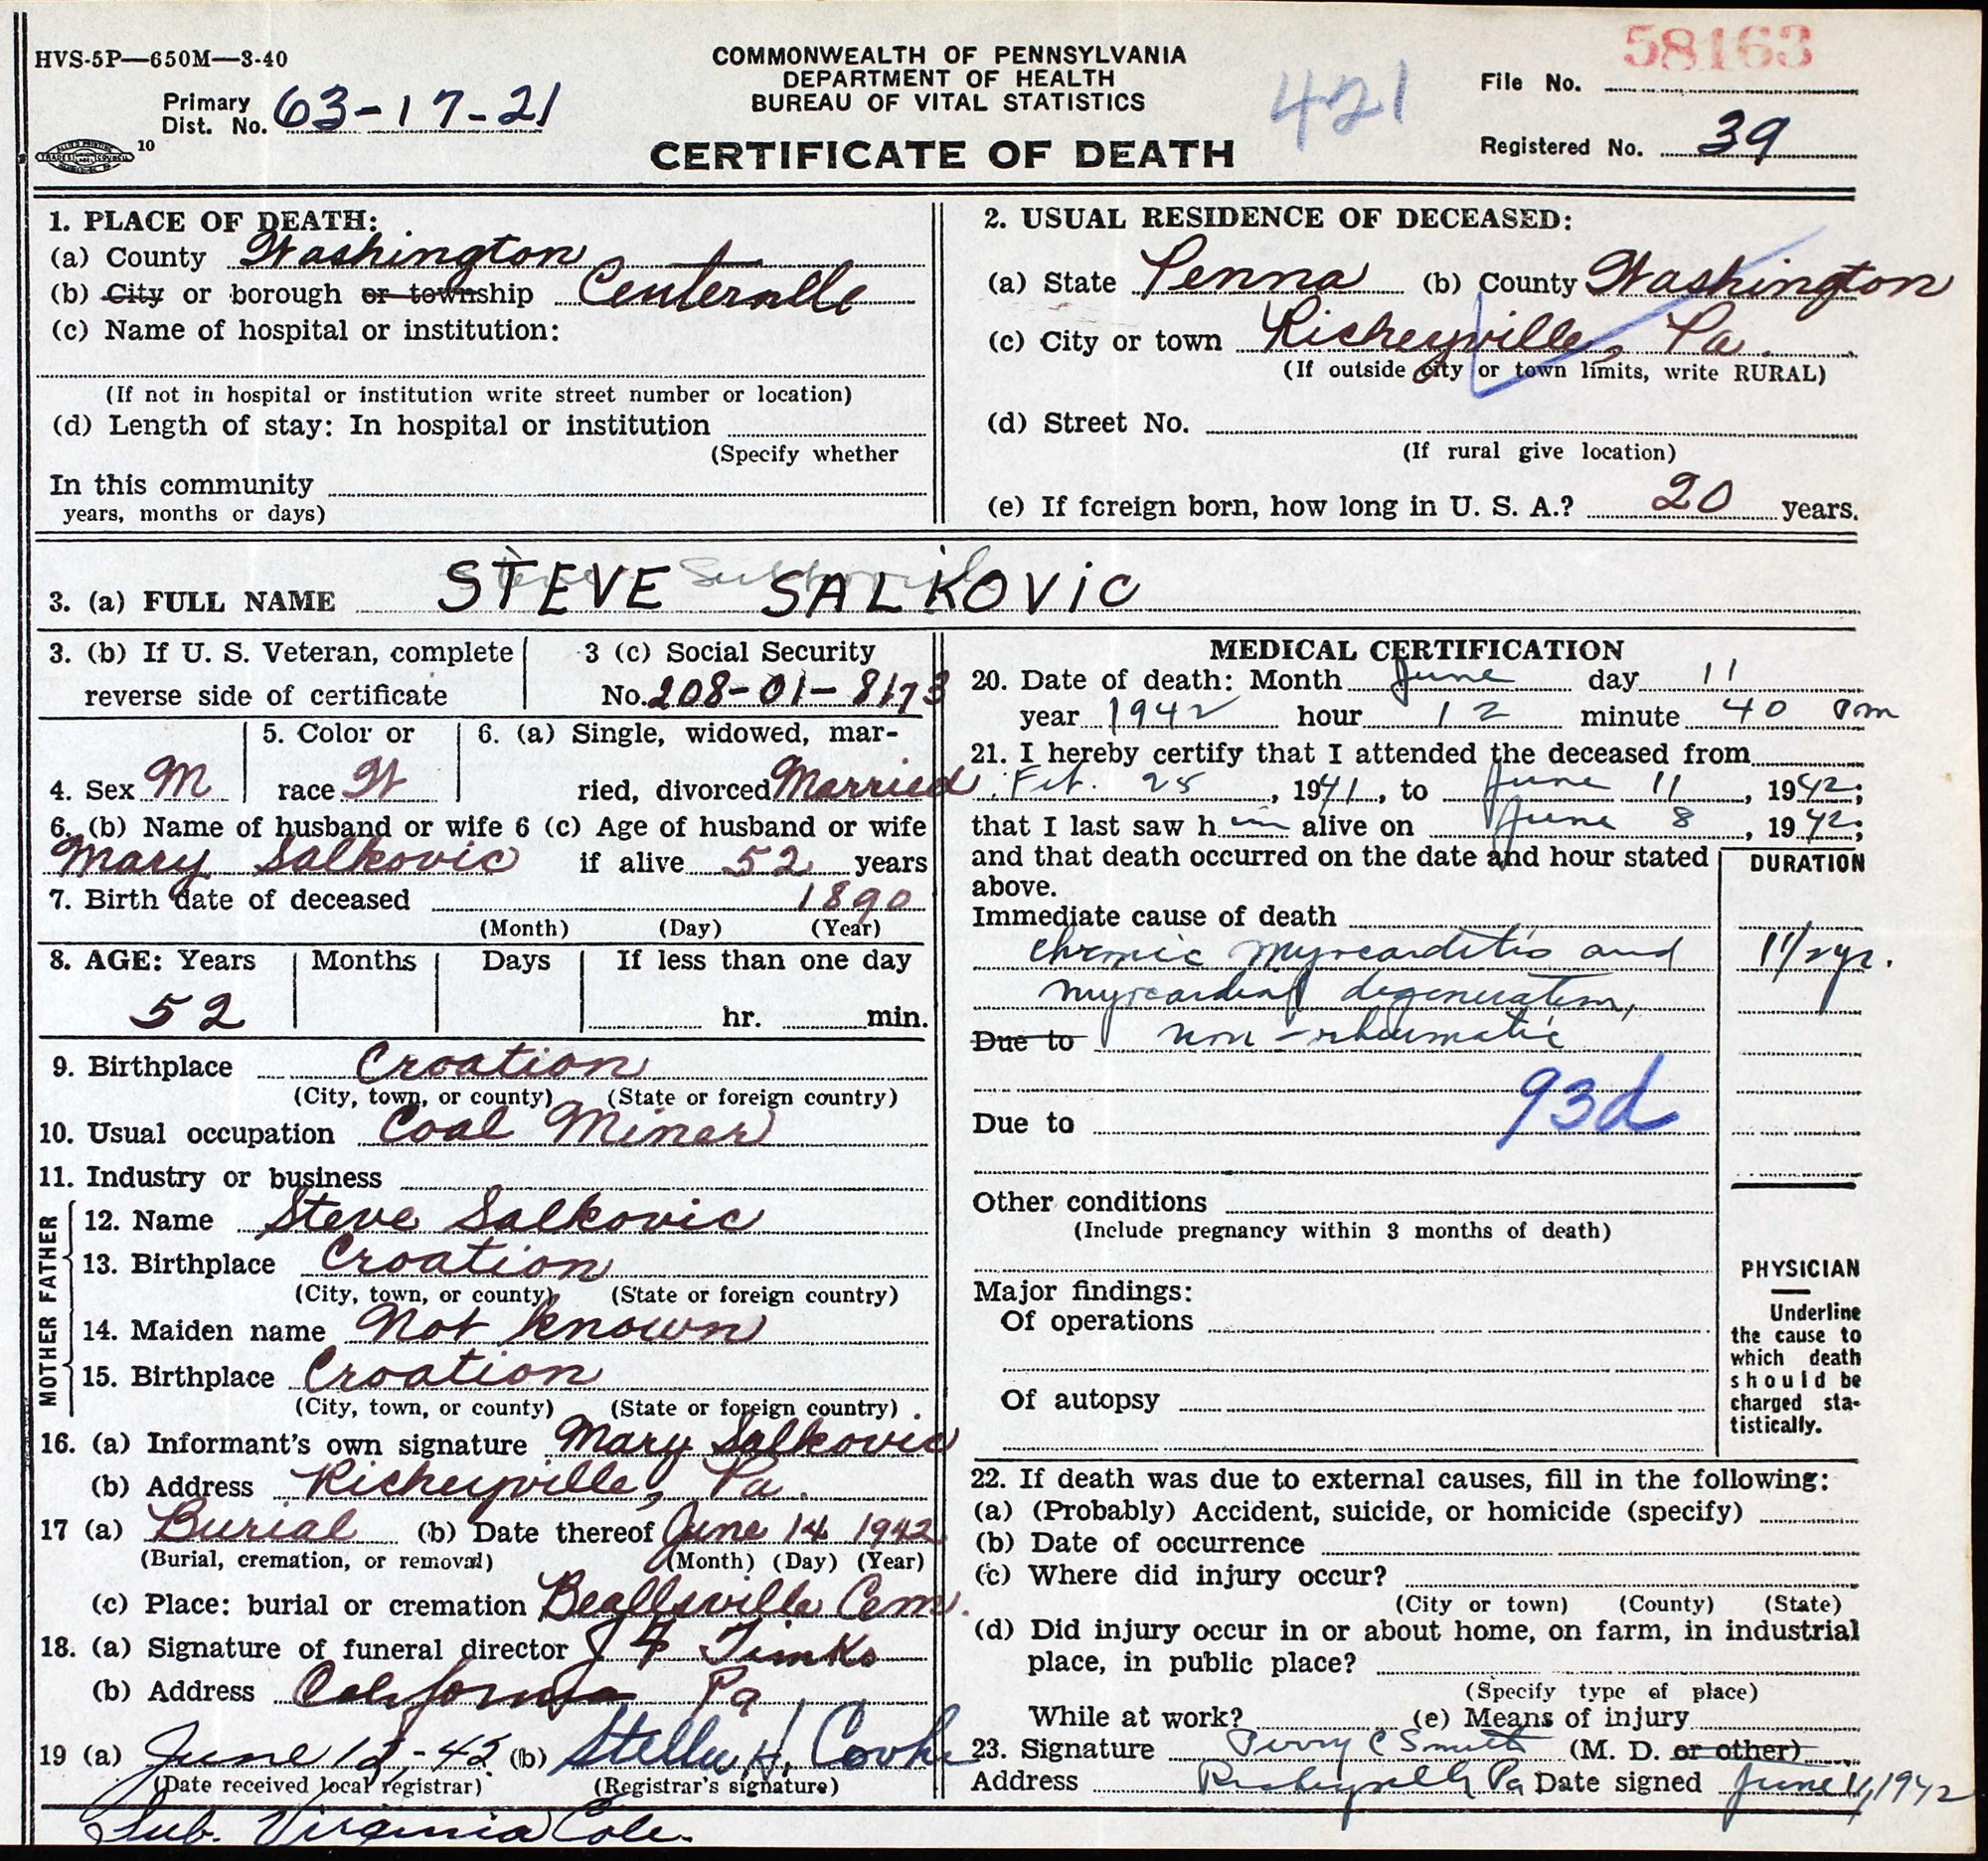 HVS-5P—650M—3-40
COMMONWEALTH OF PENNSYLVANIA
DEPARTMENT OF HEALTH
BUREAU OF VITAL STATISTICS
CERTIFICATE OF DEATH
58163
421
File No.
Primary Dist. No. 63-17-21
10
Registered No. 39
1. PLACE OF DEATH:
(a) County Washington
(b) City or borough or township Centerville
(c) Name of hospital or institution:
(If not in hospital or institution write street number or location)
(d) Length of stay: In hospital or institution
(Specify whether
In this community
years, months or days)
2. USUAL RESIDENCE OF DECEASED:
(a) State Penna (b) County Washington
(c) City or town Richeyville, Pa.
(If outside city or town limits, write RURAL)
(d) Street No.
(If rural give location)
(e) If foreign born, how long in U. S. A.? 20 years.
3. (a) FULL NAME STEVE SALKOVIC
3. (b) If U. S. Veteran, complete
reverse side of certificate
3 (c) Social Security
No. 208-01-8173
4. Sex M
5. Color or
race W
6. (a) Single, widowed, mar-
ried, divorced Married
6. (b) Name of husband or wife 6 (c) Age of husband or wife
Mary Salkovic if alive 52 years
7. Birth date of deceased 1890
(Month) (Day) (Year)
8. AGE: Years Months Days If less than one day
52 hr. min.
9. Birthplace Croation
(City, town, or county) (State or foreign country)
10. Usual occupation Coal Miner
11. Industry or business
FATHER
12. Name Steve Salkovic
13. Birthplace Croation
(City, town, or county) (State or foreign country)
MOTHER
14. Maiden name Not known
15. Birthplace Croation
(City, town, or county) (State or foreign country)
16. (a) Informant's own signature Mary Salkovic
(b) Address Richeyville, Pa.
17 (a) Burial (b) Date thereof June 14 1942
(Burial, cremation, or removal) (Month) (Day) (Year)
(c) Place: burial or cremation Beallsville Cem.
18. (a) Signature of funeral director J F Timko
(b) Address California Pa
19 (a) June 12,-42 (b) Stella H. Cooke
(Date received local registrar) (Registrar's signature)
Sub. Virginia Cole.
MEDICAL CERTIFICATION
20. Date of death: Month June day 11
year 1942 hour 12 minute 40 pm
21. I hereby certify that I attended the deceased from
Feb. 25, 1941, to June 11, 1942;
that I last saw h im alive on June 8, 1942;
and that death occurred on the date and hour stated
above.
DURATION
Immediate cause of death
chronic myocarditis and 1 1/2 yr.
myocardial degeneration,
Due to non-rheumatic
93d
Due to
Other conditions
(Include pregnancy within 3 months of death)
Major findings:
Of operations
Of autopsy
PHYSICIAN
Underline
the cause to
which death
should be
charged sta-
tistically.
22. If death was due to external causes, fill in the following:
(a) (Probably) Accident, suicide, or homicide (specify)
(b) Date of occurrence
(c) Where did injury occur?
(City or town) (County) (State)
(d) Did injury occur in or about home, on farm, in industrial
place, in public place?
(Specify type of place)
While at work? (e) Means of injury
23. Signature Perry C Smith (M. D. or other)
Address Richeyville Pa Date signed June 11, 1942